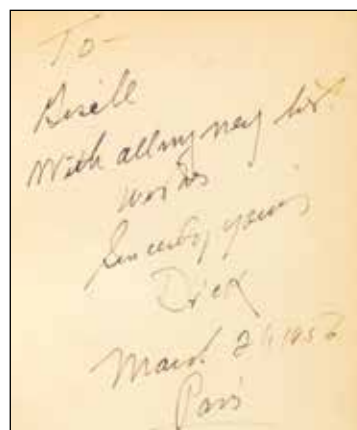 To—
Gisèle
With all my very best
wishes
Sincerely yours
Dick
March 1957
Paris